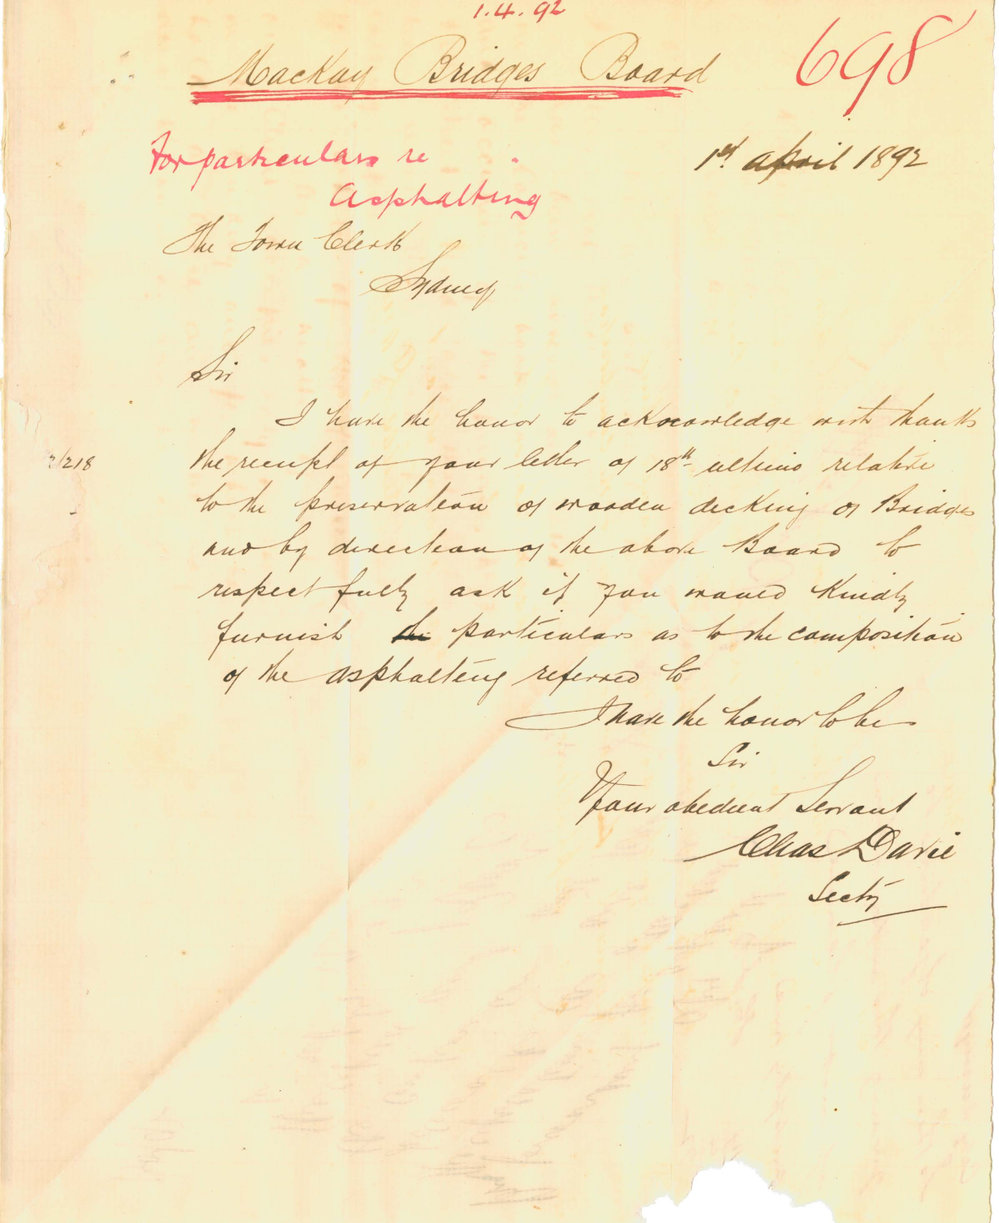 1.4.92
Mackay Bridges Board
698
For particulars re
Asphalting
1st April 1892
The Town Clerk
Sydney
Sir
I have the honor to acknowledge with thanks
2/218
the receipt of your letter of 18th ultimo relative
to the preservation of wooden decking of Bridges
and by direction of the above Board to
respectfully ask if you would kindly
furnish the particulars as to the composition
of the asphalting referred to
I have the honor to be
Sir
Your obedient Servant
Chas Davie
Secty